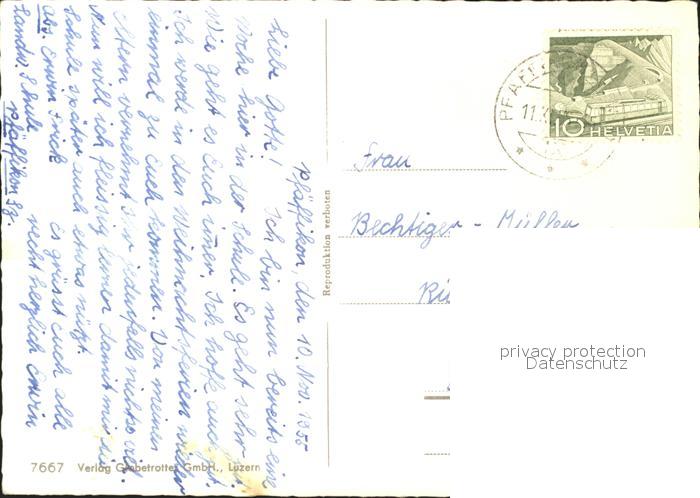 Pfäffikon, den 10. Nov. 1955
Liebe Gotte! Ich bin nun bereits eine
Woche hier in der Schule. Es geht sehr gut.
Wie geht es Euch immer. Ich hoffe auch gut.
Ich werd in den Weihnachtsferien wieder
einmal zu Euch kommen. Von meinen
Eltern vernehmt Ihr jedenfalls nicht so viel.
Nun will ich fleissig lernen damit mir die
Schule später auch etwas nützt.
es grüsst euch alle
recht herzlich Erwin
abs. Erwin Frick
Landw. Schule
Pfäffikon Sz.
Reproduktion verboten
7667 Verlag Globetrotter GmbH., Luzern
PFÄFF
11.X
10 HELVETIA
Frau
Bechtiger - Müller
Rü
privacy protection
Datenschutz